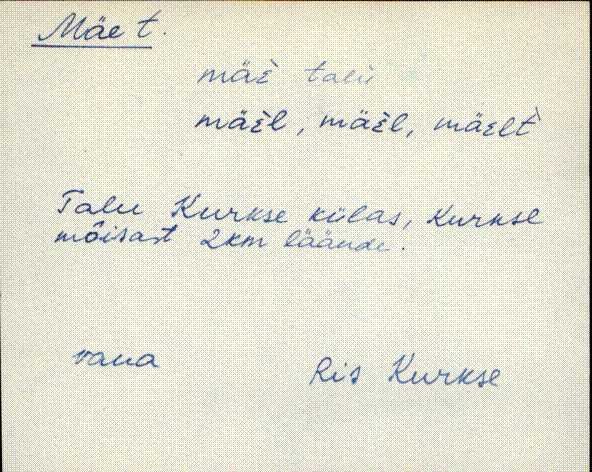 Mäe t.
mäè talu
mäèl, mäèl, mäelt
Talu Kurkse külas, Kurkse
mõisast 2km läände.
vana
Ris Kurkse